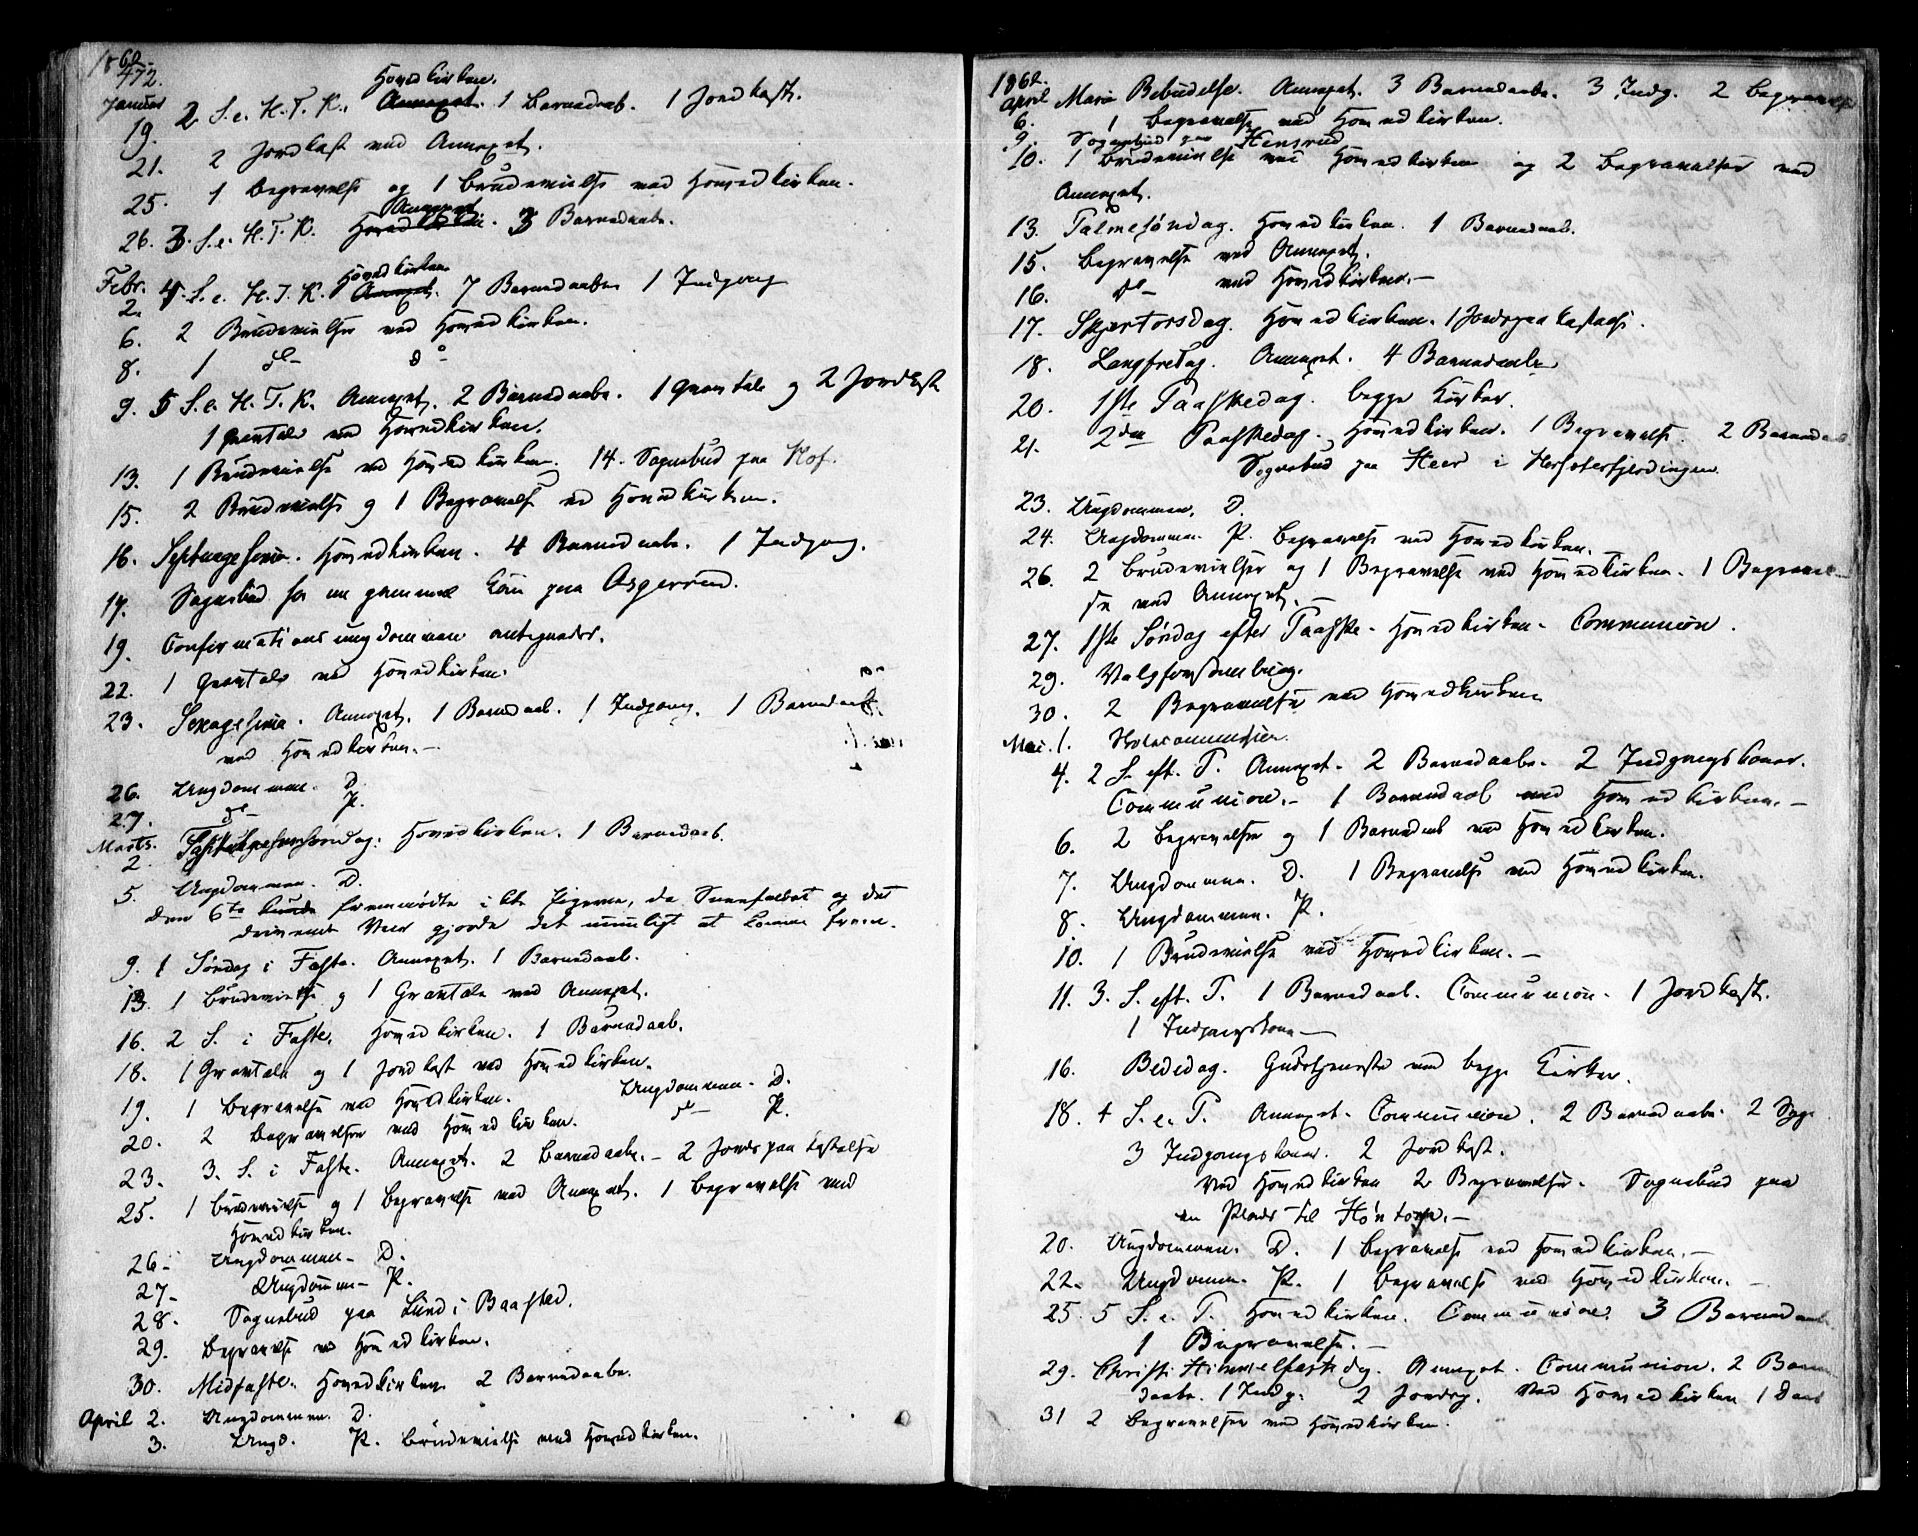 1862.
472.
Hovedkirken.
Januar 2 S. e. H. T. K. Annexet. 1 Barnedaab. 1 Jordkast.
19.
21. 2 Jordkast ved Annexet.
25. 1 Begravelse og 1 Brudevielse ved Hovedkirken.
Annexet
26. 3. S. e. H. T. K. Hovedkirken. 3 Barnedaabe.
Hovedkirken
Febr. 4. S. e. H. T. K. Annexet. 7 Barnedaabe 1 Indgang
2.
6. 2 Brudevielser ved Hovedkirken.
8. 1 do- do-
9. 5 S. e. H. T. K. Annexet. 2 Barnedaabe. 1 Gravtale og 2 Jordkast
1 Gravtale ved Hovedkirken.
13. 1 Brudevielse ved Hovedkirken. 14. Sognebud paa Hof.
15. 2 Brudevielse og 1 Begravelse ved Hovedkirken.
16. Septuagesima. Hovedkirken. 4 Barnedaabe. 1 Indgang.
17. Sognebud for en gammel Kone paa Asgerrud.
19. Confirmationsungdommen antegnedes.
22. 1 Gravtale ved Hovedkirken.
23. Sexagesima. Annexet. 1 Barnedaab. 1 Indgang. 1 Barnedaab
ved Hovedkirken.-
26. Ungdommen. D.
27. do- P.
Marts. Fastelavnssøndag. Hovedkirken. 1 Barnedaab.
2
5. Ungdommen. D.
Den 6te fremmødte ikke Pigerne, da Sneefaldet og det
drivende Veir gjorde det umuligt at komme frem.
9. 1 Søndag i Faste. Annexet. 1 Barnedaab.
13. 1 Brudevielse og 1 Gravtale ved Annexet.
16. 2 S. i Faste. Hovedkirken. 1 Barnedaab.
18. 1 Gravtale og 1 Jordkast ved Hovedkirken.
19. 1 Begravelse ved Hovedkirken. Ungdommen. D.
20. 2 Begravelser ved Hovedkirken. do- P.
23. 3. S. i Faste. Annexet. 2 Barnedaabe.- 2 Jordspaakastelse
25. 1 Brudevielse og 1 Begravelse ved Annexet. 1 Begravelse ved
Hovedkirken.
26- Ungdommen- D.
27- Ungdommen- P.
28. Sognebud paa Lund i Baasted.
29. Begravelse ved Hovedkirken.
30. Midfaste. Hovedkirken 2 Barnedaabe.
April 2. Ungdommen. D.
3. Ungd. P. Brudevielse ved Hovedkirken.
1862.
April Mariæ Bebudelse. Annexet. 3 Barnedaabe. 3 Indg. 2 Begravelse
6. 1 Begravelse ved Hovedkirken.
9. Sognebud paa Hensrud
10. 1 Brudevielse ved Hovedkirken og 2 Begravelser ved
Annexet.
13. Palmesøndag. Hovedkirken. 1 Barnedaab.
15. Begravelse ved Annexet.
16. do- ved Hovedkirken.-
17. Skjærtorsdag. Hovedkirken. 1 Jordspaakastelse.
18. Langfredag. Annexet. 4 Barnedaabe
20. 1ste Paaskedag. begge Kirker.
21. 2den Paaskedag. Hovedkirken. 1 Begravelse. 2 Barnedaab
Sognebud paa Heer i Herseterfjerdingen.
23. Ungdommen. D.
24. Ungdommen P. Begravelse ved Hovedkirken.
26. 2 Brudevielser og 1 Begravelse ved Hovedkirken. 1 Begravel-
se ved Annexet.-
27. 1ste Søndag efter Paaske. Hovedkirken. Communion.
29. Valgforsamling.
30. 2 Begravelser ved Hovedkirken
Mai. 1. Skolecommission.
4. 2 S. eft. P. Annexet. 2 Barnedaabe. 2 Indgangskoner.
Communion.- 1 Barnedaab ved Hovedkirken.-
6. 2 Begravelser og 1 Barnedaab ved Hovedkirken.
7. Ungdommen. D. 1 Begravelse ved Hovedkirken.
8. Ungdommen. P.
10. 1 Brudevielse ved Hovedkirken.-
11. 3. S. eft. P. 1 Barnedaab. Communion. 1 Jordkast.
1 Indgangskone-
16. Bededag. Gudstjeneste ved begge Kirker.
18. 4 S. e. P. Annexet. Communion. 2 Barnedaabe. 2 Syge
3 Indgangskoner. 2 Jordkast.
Ved Hovedkirken 2 Begravelser. Sognebud paa
en Plads til Høntorp.-
20. Ungdommen. D. 1 Begravelse ved Hovedkirken.-
22. Ungdomm. P. 1 Begravelse ved Hovedkirken.-
25. 5 S. e. P. Hovedkirken. Communion. 3 Barnedaab
1 Begravelse.-
29. Christi Himmelfartsdg. Annexet. Communion. 2 Barne
daabe. 1 Indg. 2 Jordsp. Ved Hovedkirken 1 Daab
31 2 Begravelser ved Hovedkirken.